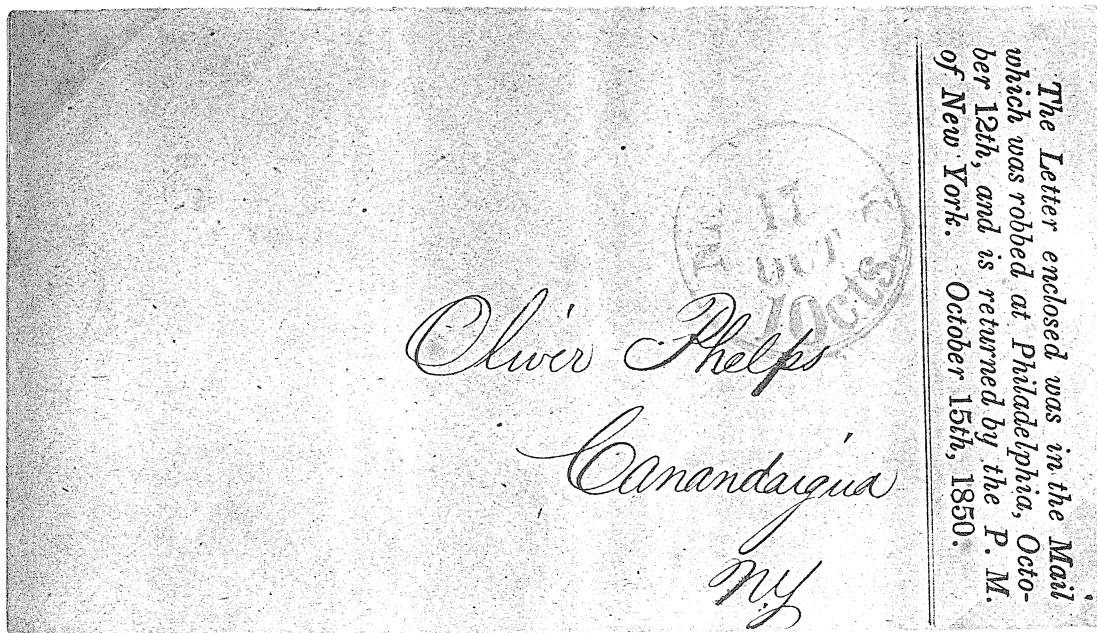 The Letter enclosed was in the Mail
which was robbed at Philadelphia, Octo-
ber 12th, and is returned by the P. M.
of New York. October 15th, 1850.
17
OCT
10cts
Oliver Phelps
Canandaigua
NY